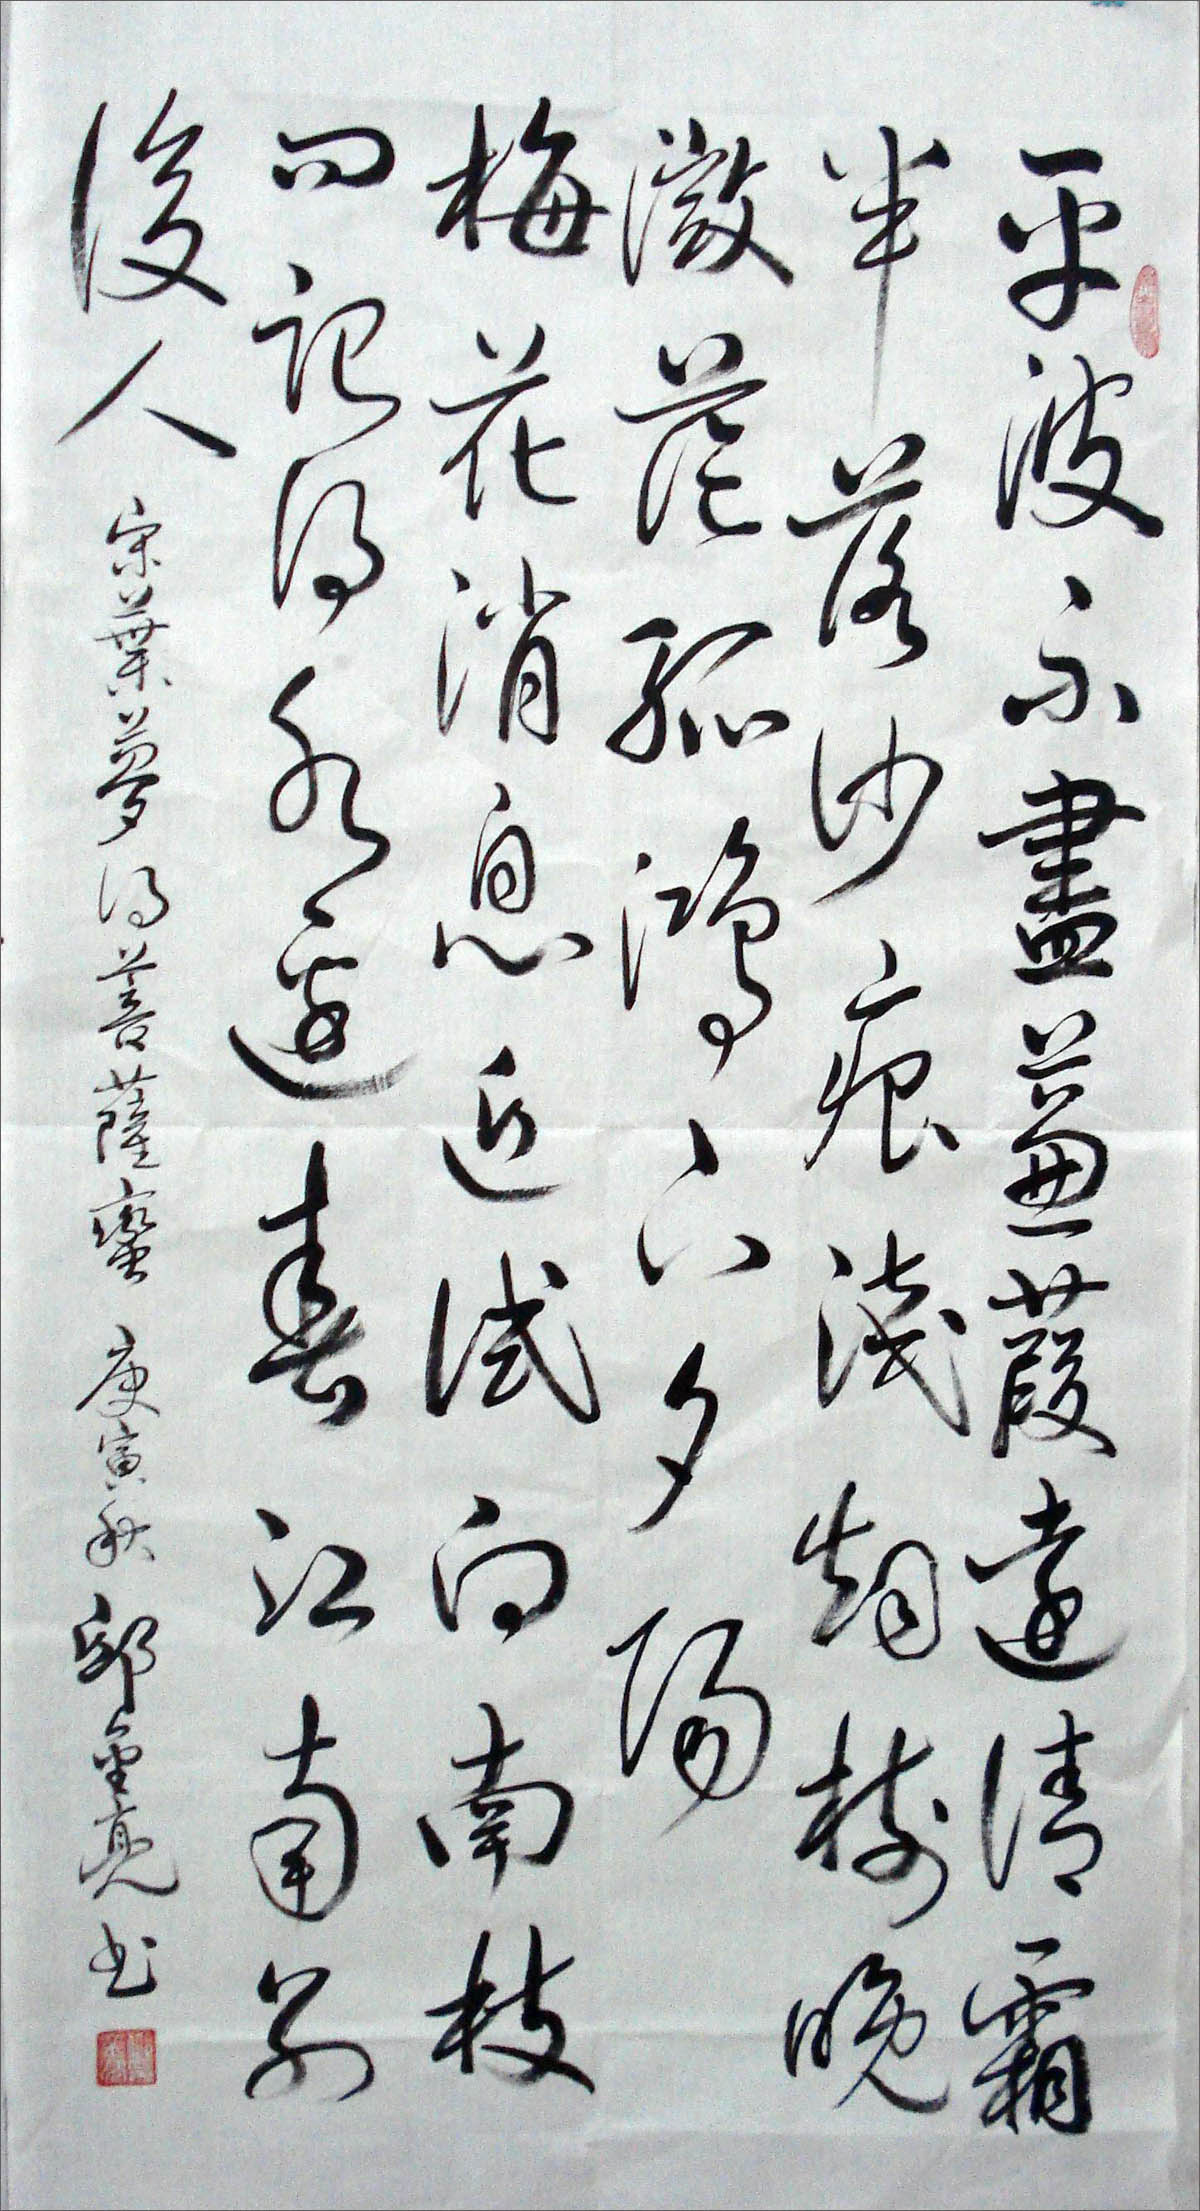 平波不盡蒹葭遠清霜
半落沙痕淺烟樹晚
微茫孤鴻下夕陽
梅花消息近試向南枝
問記得水邊春江南別
後人
宋葉夢得菩薩蠻 庚寅秋 邱亮书